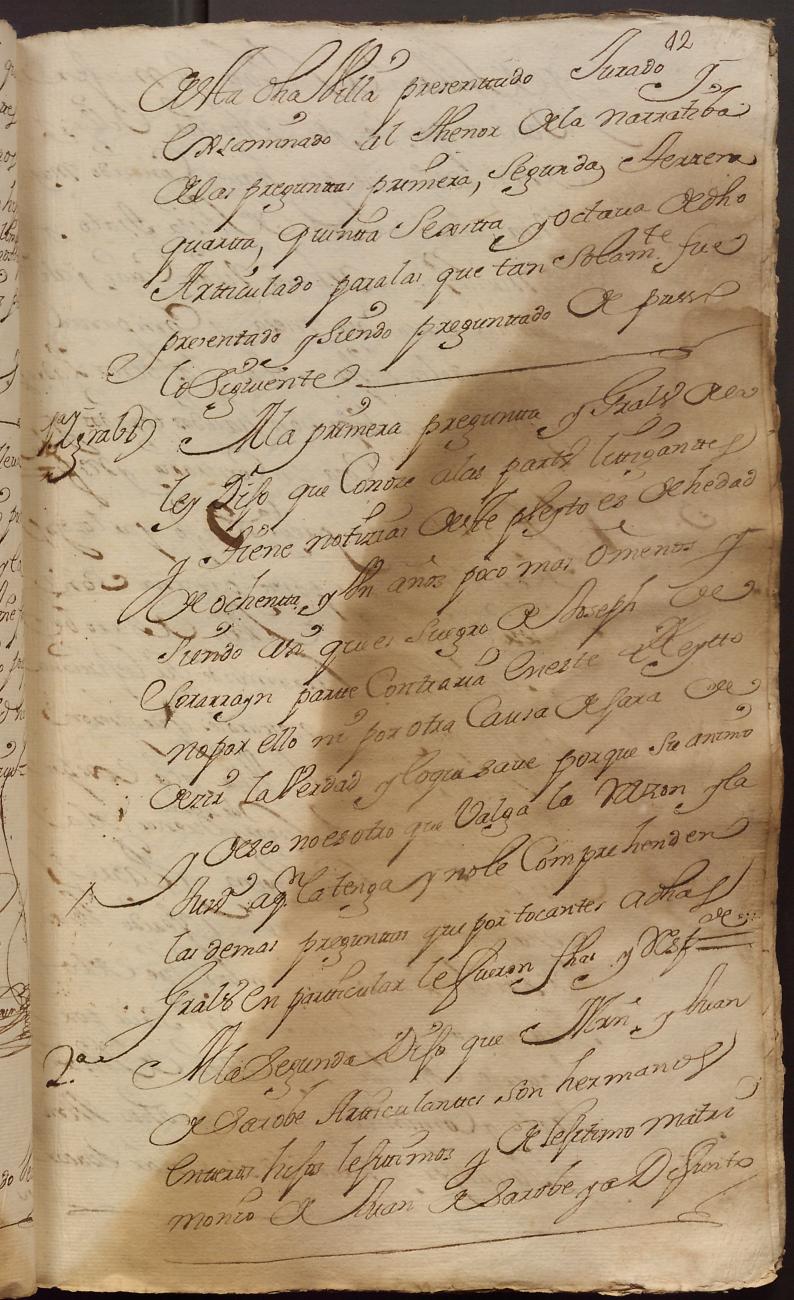 12
desta dha Villa presentado Jurado y
Exsaminado al thenor dela narratiba
delas preguntas primera, Segunda, terzera
quarta, quinta Sexsta y Octava de dho
Articulado paralas que tan Solamte fue
presentado y Siendo preguntado depusso
lo Siguiente
1ª y grales Ala primera pregunta y Grales dela
ley Dijo que Conoze alas partes litigantes
y tiene notizias deste pleyto es de hedad
de ochenta y Un años poco mas omenos y
Siendo Asi que es Suegro de Joseph de
Sorarrayn parte Contraria Eneste Pleytto
nopor ello ni por otra Causa dejara de
dezir la Verdad y loque save porque Su animo
y deseo no es otro que Valga la Razon yla
Justª aqn la tenga y nole Comprehenden
las demas preguntas que por tocantes adhas
Grales En particular le fueron fhas y Resp de
2ª Ala Segunda Dijo que Mrn y Juan
de Sarobe Articulantes son hermanos
Enteros hijos lejitimos y de lejitimo matri
monio de Juan de Sarobe ya Difunto